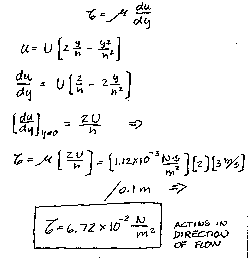 τ = μ du/dy
u = U [2 y/h - y²/h²]
du/dy = U [2/h - 2y/h²]
[du/dy]y=0 = 2U/h ⇒
τ = μ [2U/h] = [1.12×10⁻³ N·s/m²] [2] [3 m/s]
/0.1 m ⇒
τ = 6.72×10⁻² N/m² ACTING IN
DIRECTION
OF FLOW